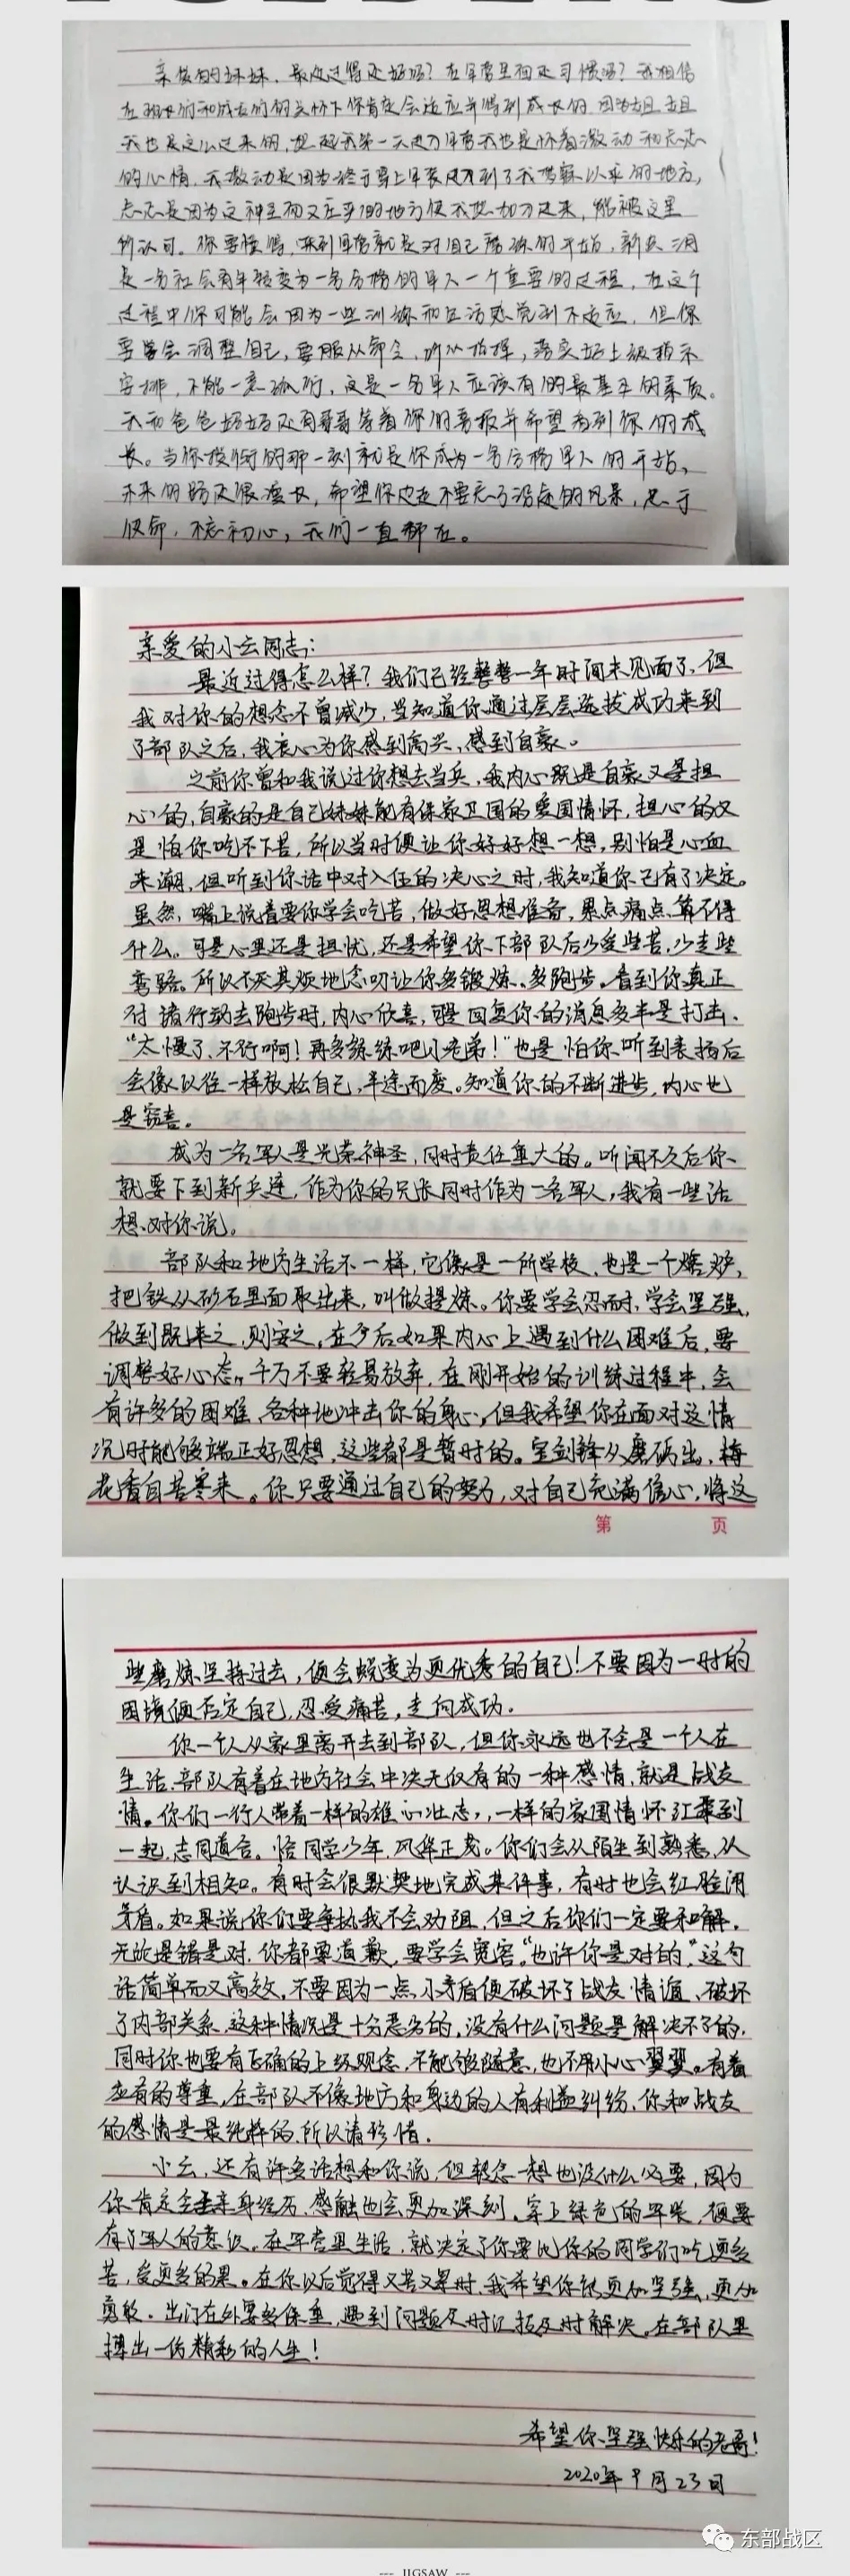 亲爱的妹妹，最近过得还好吗？在军营里面还习惯吗？我相信
在班长们和战友们的关怀下你肯定会适应并得到成长的，因为姐姐
我也是这么过来的，想起我第一天进入军营我也是怀着激动和忐忑
的心情，我激动是因为终于穿上军装来到了我梦寐以求的地方，
忐忑是因为这神圣而又庄严的地方使我想加入进来，能被这里
所认可。你要懂得，来到军营就是对自己磨练的开始，新兵
是一名社会青年转变为一名合格的军人一个重要的过程，在这个
过程中你可能会因为一些训练和生活感觉到不适应，但你
要学会调整自己，要服从命令，听从指挥，落实好上级指示
安排，不能一意孤行，这是一名军人应该有的最基本的素质。
我和爸爸妈妈还有哥哥等着你的喜报并希望看到你的成
长。当你授衔的那一刻就是你成为一名合格军人的开始，
未来的路还很漫长，希望你边走不要忘了沿途的风景，忠于
使命，不忘初心，我们一直都在。
亲爱的小云同志：
最近过得怎么样？我们已经整整一年时间未见面了，但
我对你的想念不曾减少，当知道你通过层层选拔成功来到
了部队之后，我衷心为你感到高兴，感到自豪。
之前你曾和我说过你想去当兵，我内心既是自豪又是担
心的，自豪的是自己妹妹能有保家卫国的爱国情怀，担心的又
是怕你吃不下苦，所以当时便让你好好想一想，别怕是心血
来潮，但听到你话中对入伍的决心之时，我知道你已有了决定。
虽然，嘴上说着要你学会吃苦，做好思想准备，累点痛点算不得
什么。可是心里还是担忧，还是希望你下部队后少受些苦，少走些
弯路。所以不厌其烦地念叨让你多锻炼、多跑步。看到你真正
付诸行动去跑步时，内心欣喜，可是回复你的消息多半是打击、
“太慢了、不行啊！再多练练吧小老弟！”也是怕你听到表扬后
会像以往一样放松自己，半途而废。知道你的不断进步，内心也
是窃喜。
成为一名军人是光荣神圣，同时责任重大的。听闻不久后你
就要下到新兵连，作为你的兄长同时作为一名军人，我有一些话
想对你说。
部队和地方生活不一样，它像是一所学校，也是一个熔炉，
把铁从砂石里面取出来，叫做提炼。你要学会忍耐，学会坚强，
做到既来之，则安之。在今后如果内心上遇到什么困难后，要
调整好心态，千万不要轻易放弃，在刚开始的训练过程中，会
有许多的困难，各种地冲击你的身心，但我希望你在面对这情
况时能够端正好思想，这些都是暂时的。宝剑锋从磨砺出，梅
花香自苦寒来。你只要通过自己的努力，对自己充满信心，将这
第 页
些磨炼坚持过去，便会蜕变为更优秀的自己！不要因为一时的
困境便否定自己，忍受痛苦，走向成功。
你一个人从家里离开去到部队，但你永远也不会是一个人在
生活，部队有着在地方社会中决无仅有的一种感情，就是战友
情。你们一行人带着一样的雄心壮志，一样的家国情怀汇聚到
一起，志同道合。恰同学少年，风华正茂。你们会从陌生到熟悉，从
认识到相知。有时会很默契地完成某件事，有时也会红脸闹
矛盾。如果说你们要争执我不会劝阻，但之后你们一定要和解，
无论是错是对，你都要道歉，要学会宽容。“也许你是对的”这句
话简单而又高效，不要因为一点小矛盾便破坏了战友情谊、破坏
了内部关系，这种情况是十分恶劣的，没有什么问题是解决不了的，
同时你也要有正确的上级观念，不能够随意，也不用小心翼翼。有着
应有的尊重，在部队不像地方和身边的人有利益纠纷，你和战友
的感情是最纯粹的，所以请珍惜。
小云，还有许多话想和你说，但转念一想也没什么必要，因为
你肯定会亲身经历，感触也会更加深刻。穿上绿色的军装，便要
有了军人的意识。在军营里生活，就决定了你要比你的同学们吃更多
苦，受更多的累。在你以后觉得又苦又累时，我希望你能更加坚强，更加
勇敢。出门在外要多保重，遇到问题及时汇报及时解决。在部队里
搏出一份精彩的人生！
希望你坚强快乐的老哥！
2020年9月23日
东部战区
--- JIGSAW ---